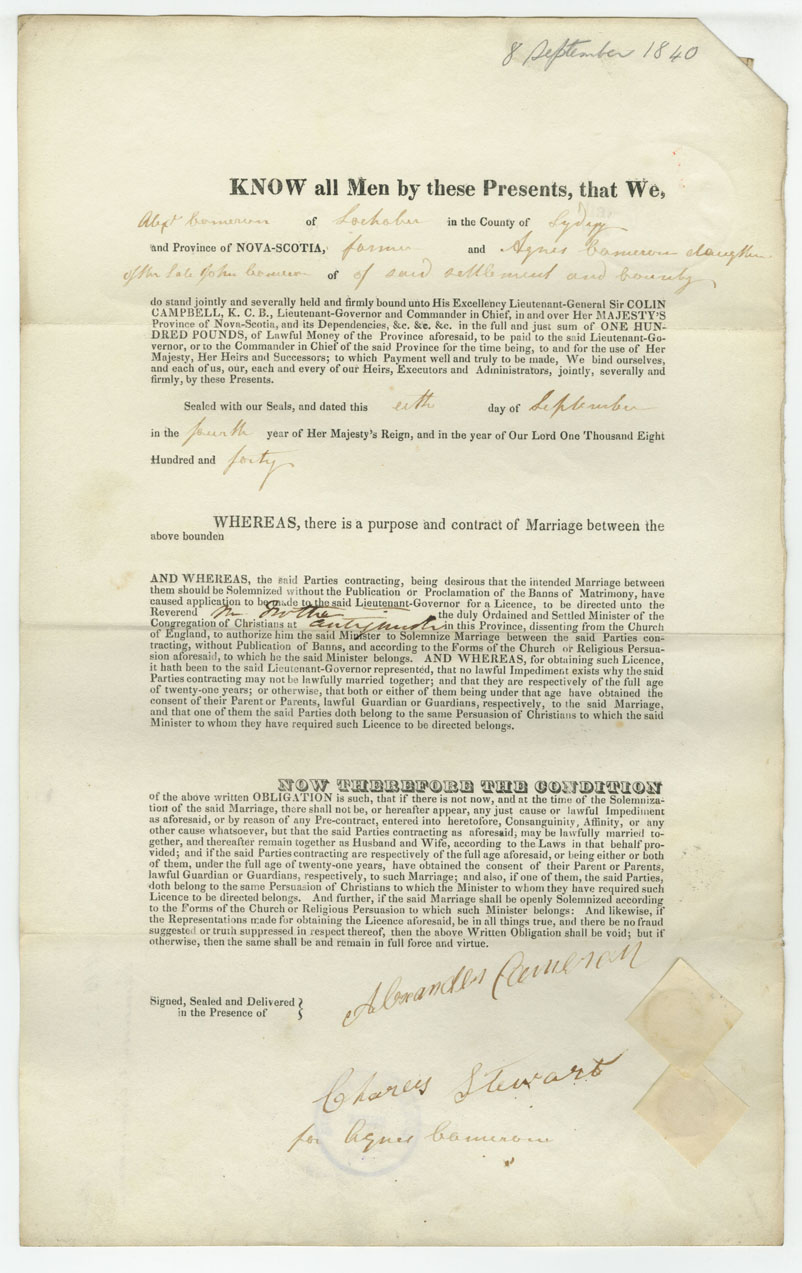 8 September 1840
KNOW all Men by these Presents, that We,
Alexr Cameron of Lochaber in the County of Sydney
and Province of NOVA-SCOTIA, farmer and Agnes Cameron daughter
of the late John Cameron of of said settlement and County
do stand jointly and severally held and firmly bound unto His Excellency Lieutenant-General Sir COLIN
CAMPBELL, K. C. B., Lieutenant-Governor and Commander in Chief, in and over Her MAJESTY'S
Province of Nova-Scotia, and its Dependencies, &c. &c. &c. in the full and just sum of ONE HUN-
DRED POUNDS, of Lawful Money of the Province aforesaid, to be paid to the said Lieutenant-Go-
vernor, or to the Commander in Chief of the said Province for the time being, to and for the use of Her
Majesty, Her Heirs and Successors; to which Payment well and truly to be made, We bind ourselves,
and each of us, our, each and every of our Heirs, Executors and Administrators, jointly, severally and
firmly, by these Presents.
Sealed with our Seals, and dated this day of September
in the fourth year of Her Majesty's Reign, and in the year of Our Lord One Thousand Eight
Hundred and forty
WHEREAS, there is a purpose and contract of Marriage between the
above bounden
AND WHEREAS, the said Parties contracting, being desirous that the intended Marriage between
them should be Solemnized without the Publication or Proclamation of the Banns of Matrimony, have
caused application to be made to the said Lieutenant-Governor for a Licence, to be directed unto the
Reverend Mr the duly Ordained and Settled Minister of the
Congregation of Christians at antigonish in this Province, dissenting from the Church
of England, to authorize him the said Minister to Solemnize Marriage between the said Parties con-
tracting, without Publication of Banns, and according to the Forms of the Church or Religious Persua-
sion aforesaid, to which he the said Minister belongs. AND WHEREAS, for obtaining such Licence,
it hath been to the said Lieutenant-Governor represented, that no lawful Impediment exists why the said
Parties contracting may not be lawfully married together; and that they are respectively of the full age
of twenty-one years; or otherwise, that both or either of them being under that age have obtained the
consent of their Parent or Parents, lawful Guardian or Guardians, respectively, to the said Marriage,
and that one of them the said Parties doth belong to the same Persuasion of Christians to which the said
Minister to whom they have required such Licence to be directed belongs.
NOW THEREFORE THE CONDITION
of the above written OBLIGATION is such, that if there is not now, and at the time of the Solemniza-
tion of the said Marriage, there shall not be, or hereafter appear, any just cause or lawful Impediment
as aforesaid, or by reason of any Pre-contract, entered into heretofore, Consanguinity, Affinity, or any
other cause whatsoever, but that the said Parties contracting as aforesaid, may be lawfully married to-
gether, and thereafter remain together as Husband and Wife, according to the Laws in that behalf pro-
vided; and if the said Parties contracting are respectively of the full age aforesaid, or being either or both
of them, under the full age of twenty-one years, have obtained the consent of their Parent or Parents,
lawful Guardian or Guardians, respectively, to such Marriage; and also, if one of them, the said Parties,
doth belong to the same Persuasion of Christians to which the Minister to whom they have required such
Licence to be directed belongs. And further, if the said Marriage shall be openly Solemnized according
to the Forms of the Church or Religious Persuasion to which such Minister belongs: And likewise, if
the Representations made for obtaining the Licence aforesaid, be in all things true, and there be no fraud
suggested or truth suppressed in respect thereof, then the above Written Obligation shall be void; but if
otherwise, then the same shall be and remain in full force and virtue.
Alexander Cameron
Signed, Sealed and Delivered
in the Presence of
Charles Stewart
for Agnes Cameron